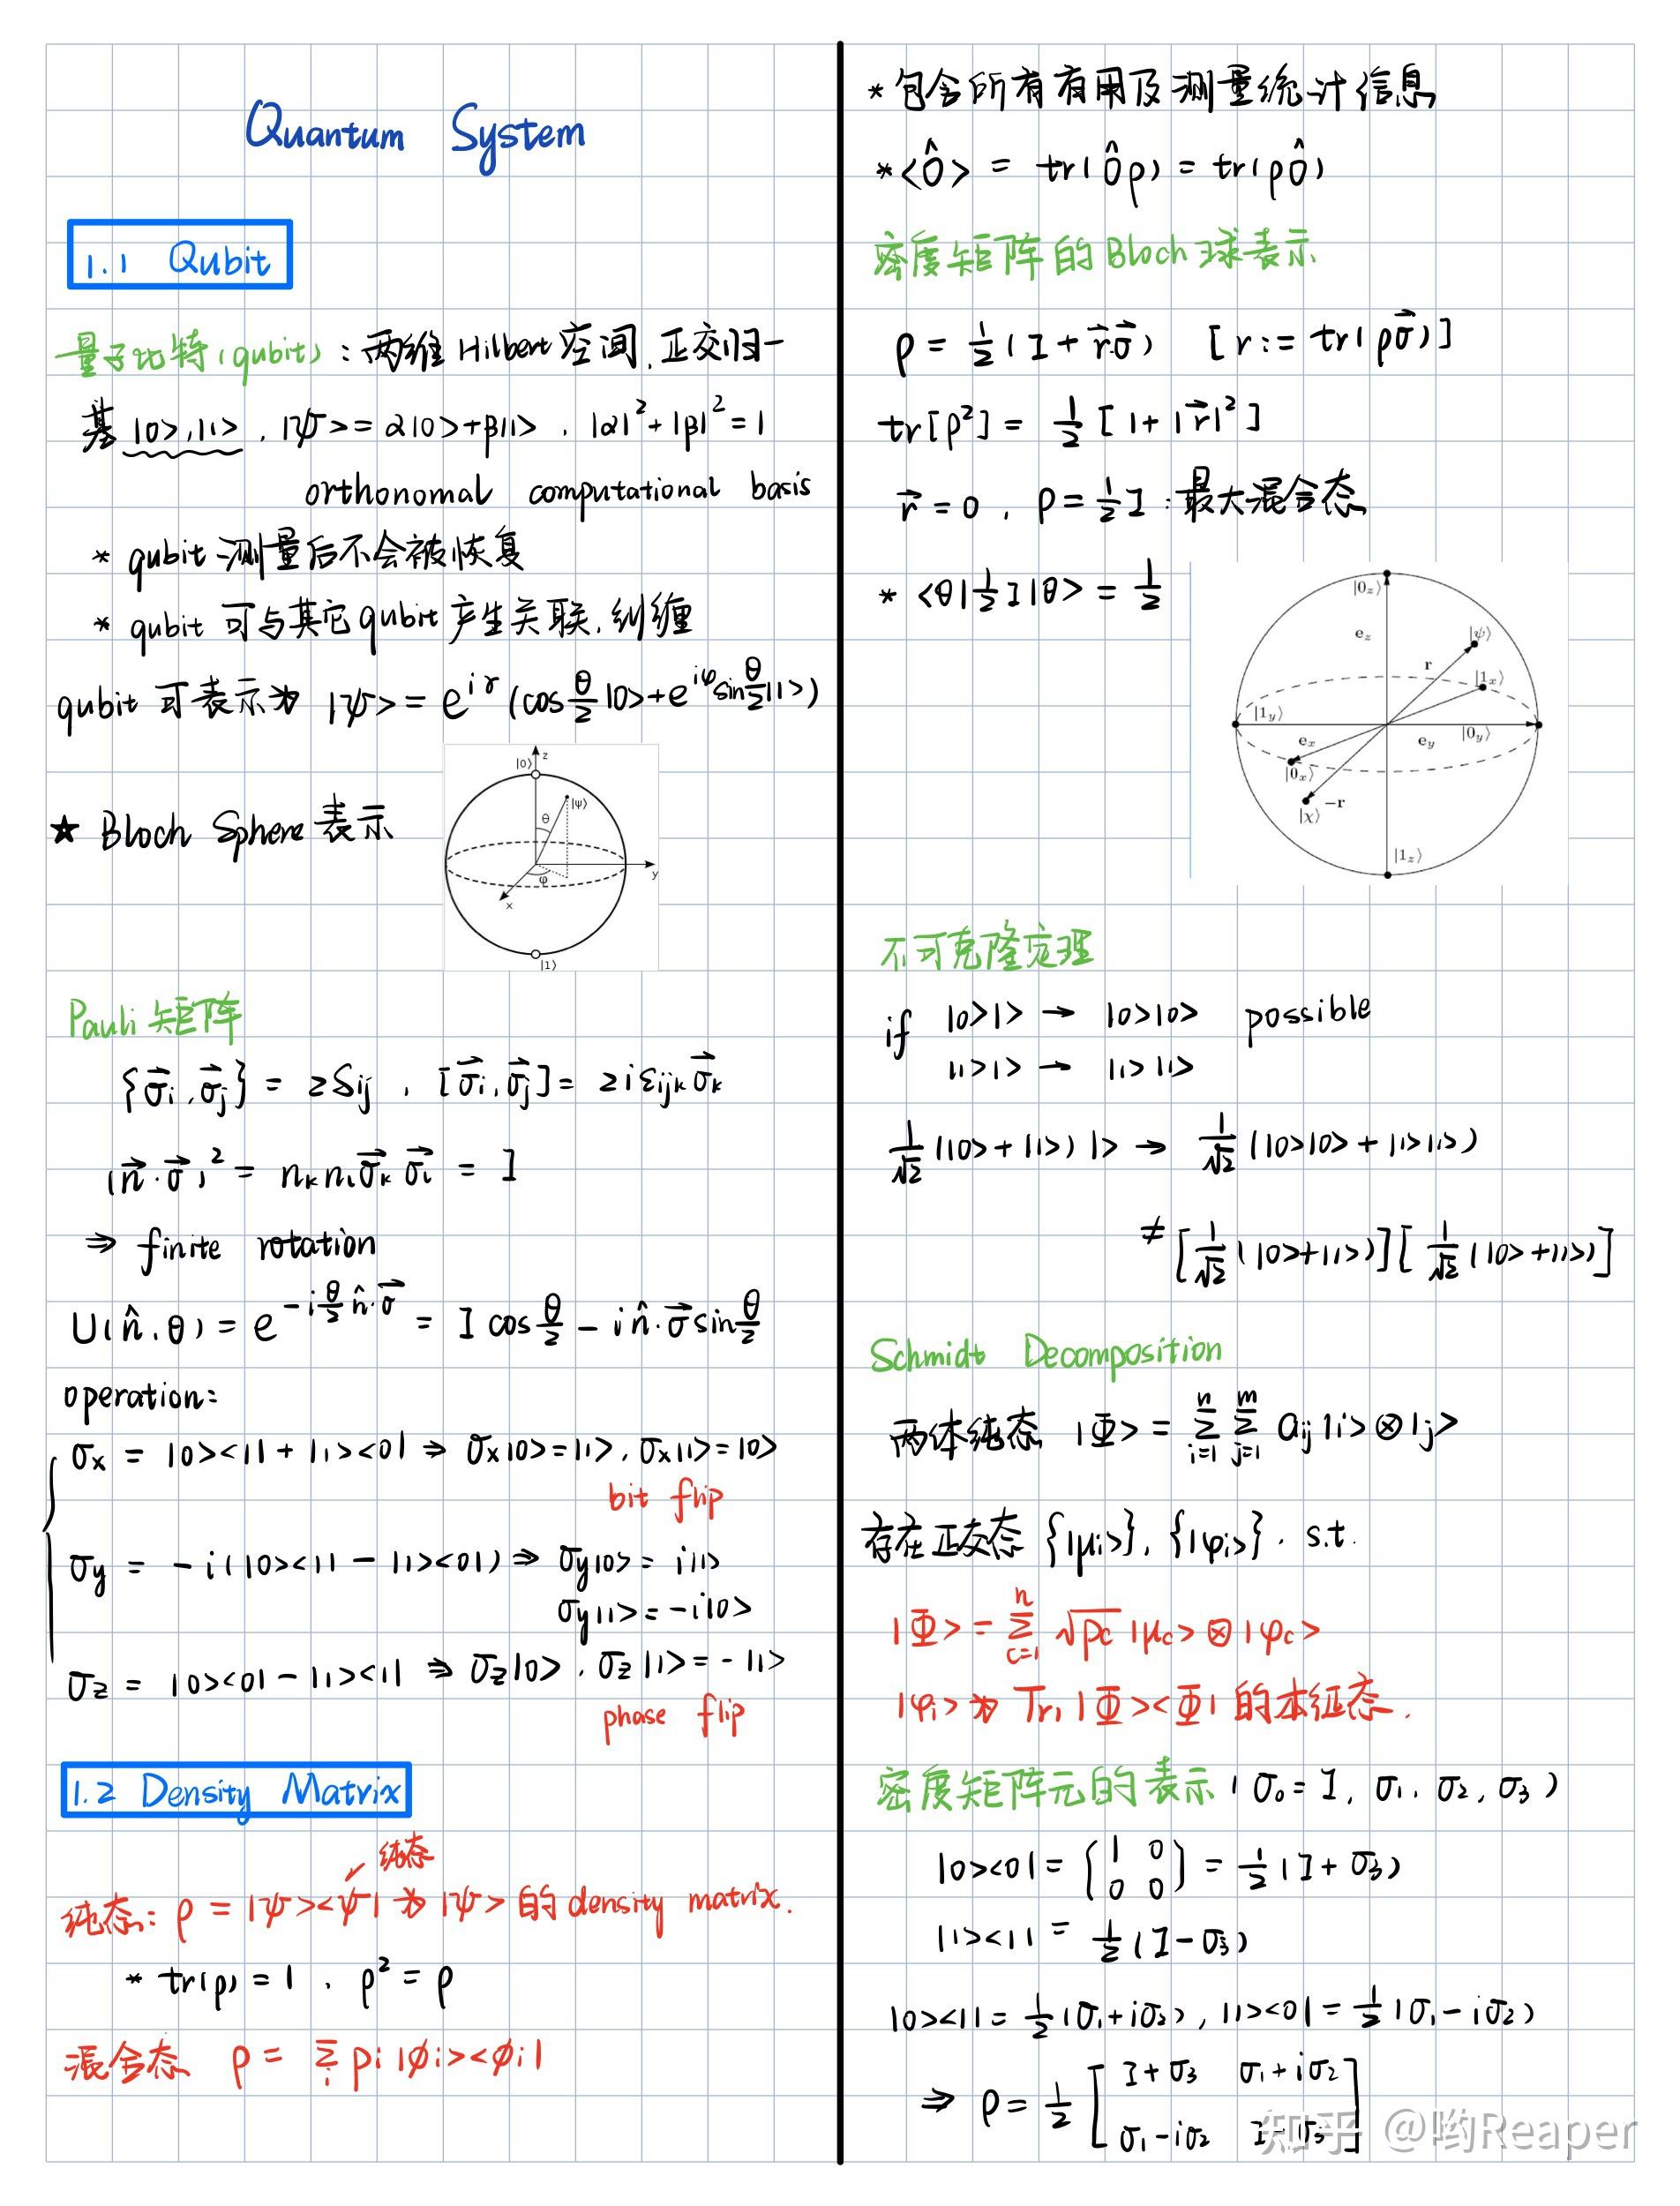 Quantum System
1.1 Qubit
量子比特(qubit): 两维Hilbert空间,正交归一
基 |0>,|1>, |ψ>=α|0>+β|1>, |α|²+|β|²=1
orthonomal computational basis
* qubit测量后不会被恢复
* qubit可与其它qubit产生关联,纠缠
qubit可表示为 |ψ> = e^{iγ}(cos θ/2 |0>+e^{iφ}sin θ/2 |1>)
★ Bloch Sphere表示
|0⟩ z
|ψ⟩
θ
φ
y
x
|1⟩
Pauli矩阵
{σ⃗i,σ⃗j} = 2δij, [σ⃗i,σ⃗j] = 2iεijk σ⃗k
(n⃗·σ⃗)² = nk nl σ⃗k σ⃗l = I
⇒ finite rotation
U(n̂,θ) = e^{-i θ/2 n̂·σ⃗} = I cos θ/2 - i n̂·σ⃗ sin θ/2
operation:
σx = |0><1| + |1><0| ⇒ σx|0>=|1>, σx|1>=|0>
bit flip
σy = -i(|0><1| - |1><0|) ⇒ σy|0> = i|1>
σy|1> = -i|0>
σz = |0><0| - |1><1| ⇒ σz|0>, σz|1> = -|1>
phase flip
1.2 Density Matrix
纯态
纯态: ρ = |ψ><ψ| 为|ψ>的density matrix.
* tr(ρ) = 1, ρ² = ρ
混合态 ρ = Σi pi |ϕi><ϕi|
* 包含所有有用及测量统计信息
* <Ô> = tr(Ôρ) = tr(ρÔ)
密度矩阵的Bloch球表示
ρ = ½(I + r⃗·σ⃗) [r := tr(ρσ⃗)]
tr[ρ²] = ½[1+|r⃗|²]
r⃗ = 0, ρ = ½I : 最大混合态
* <θ|½I|θ> = ½
|0z⟩
ez
|ψ⟩
r
|1x⟩
|1y⟩
ex
ey
|0y⟩
|0x⟩
|χ⟩
-r
|1z⟩
不可克隆定理
if |0>|> → |0>|0> possible
|1>|> → |1>|1>
1/√2 (|0> + |1>) |> → 1/√2 (|0>|0> + |1>|1>)
≠ [1/√2 (|0>+|1>)][1/√2 (|0>+|1>)]
Schmidt Decomposition
两体纯态 |Φ> = Σ_{i=1}^{n} Σ_{j=1}^{m} aij |i>⊗|j>
存在正交态 {|μi>}, {|φi>}, s.t.
|Φ> = Σ_{c=1}^{n} √pc |μc>⊗|φc>
|φi>为 Tr₁|Φ><Φ| 的本征态.
密度矩阵元的表示 (σ0 = I, σ1, σ2, σ3)
|0><0| = (1 0 0 0) = ½(I + σ3)
|1><1| = ½(I - σ3)
|0><1| = ½(σ1+iσ2), |1><0| = ½(σ1-iσ2)
⇒ ρ = ½ [I+σ3 σ1+iσ2
σ1-iσ2 I-σ3]
知乎 @哟Reaper